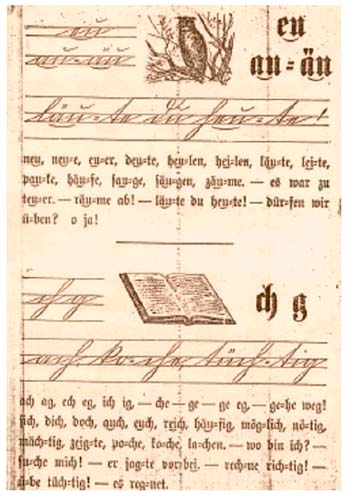 eu
au = äu
äu
au = äu
läu = te du heu = te!
neu, neu=e, eu=er, deu=te, heu=len, hei=len, läu=te, lei=te,
pau=ke, häu=fe, sau=ge, säu=gen, zäu=me. — es war zu
teu=er. — räu=me ab! — läu=te du heu=te! — dür=fen wir
ü=ben? o ja!
ch g
ch g
ach ko = che, tüch = tig
ach ag, ech eg, ich ig, — che — ge — ge eg, — ge=he weg!
sich, dich, doch, auch, euch, reich, häu=fig, mög=lich, nö=tig,
mäch=tig, zeig=te, po=che, ko=che, la=chen. — wo bin ich? —
su=che mich! — er jag=te vor=bei. — rech=ne rich=tig! —
ü=be tüch=tig! — es reg=net.